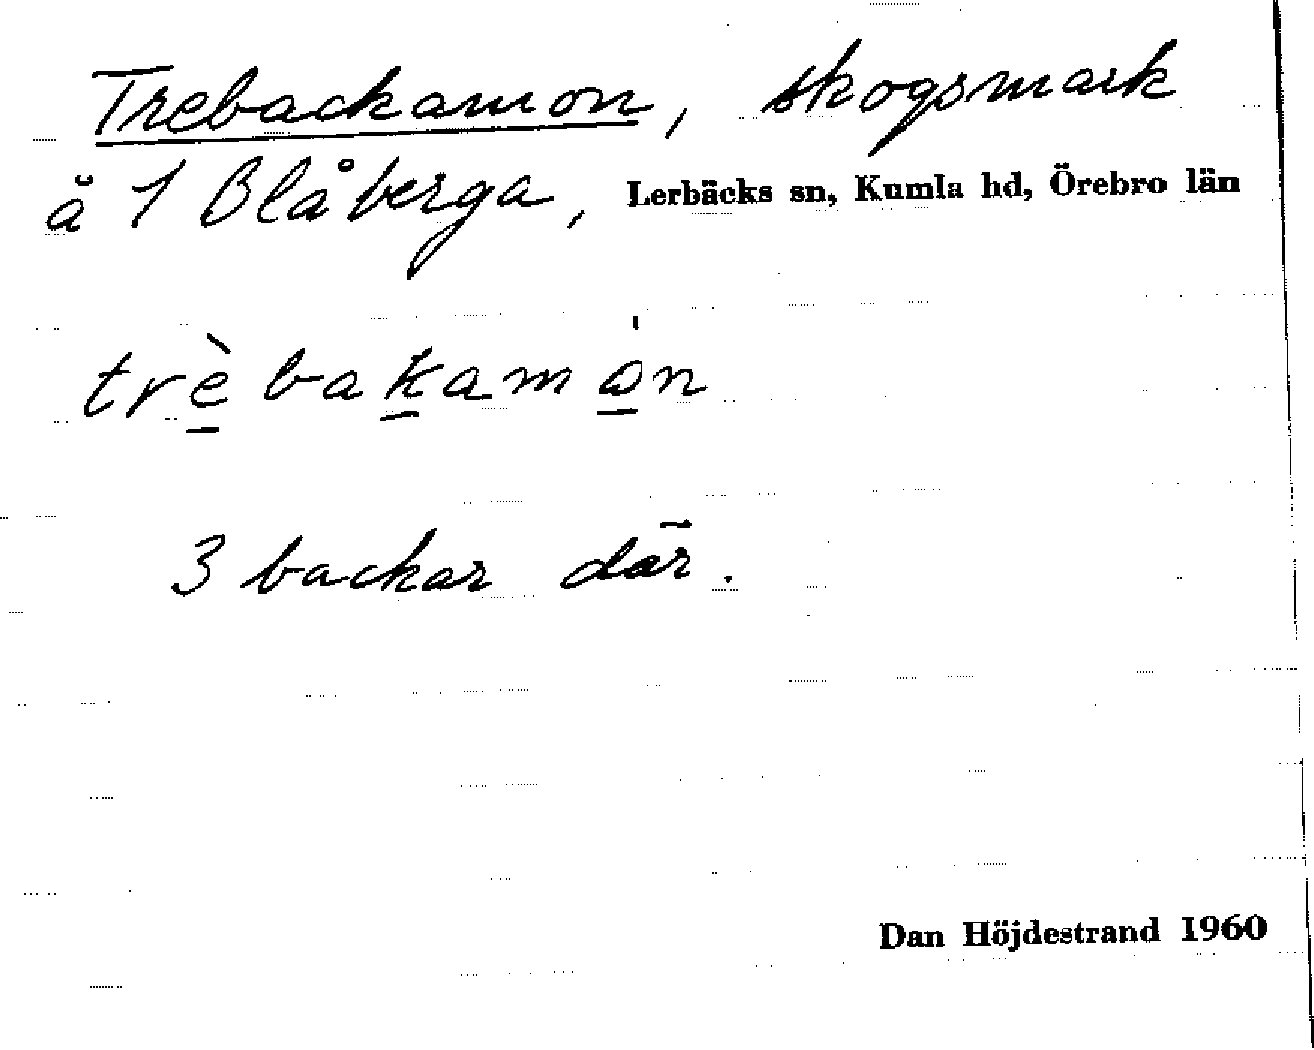 Trebackamon, skogsmark
å 1 Blåberga, Lerbäcks sn, Kumla hd, Örebro län
trèbakamo̍n
3 backar där.
Dan Höjdestrand 1960